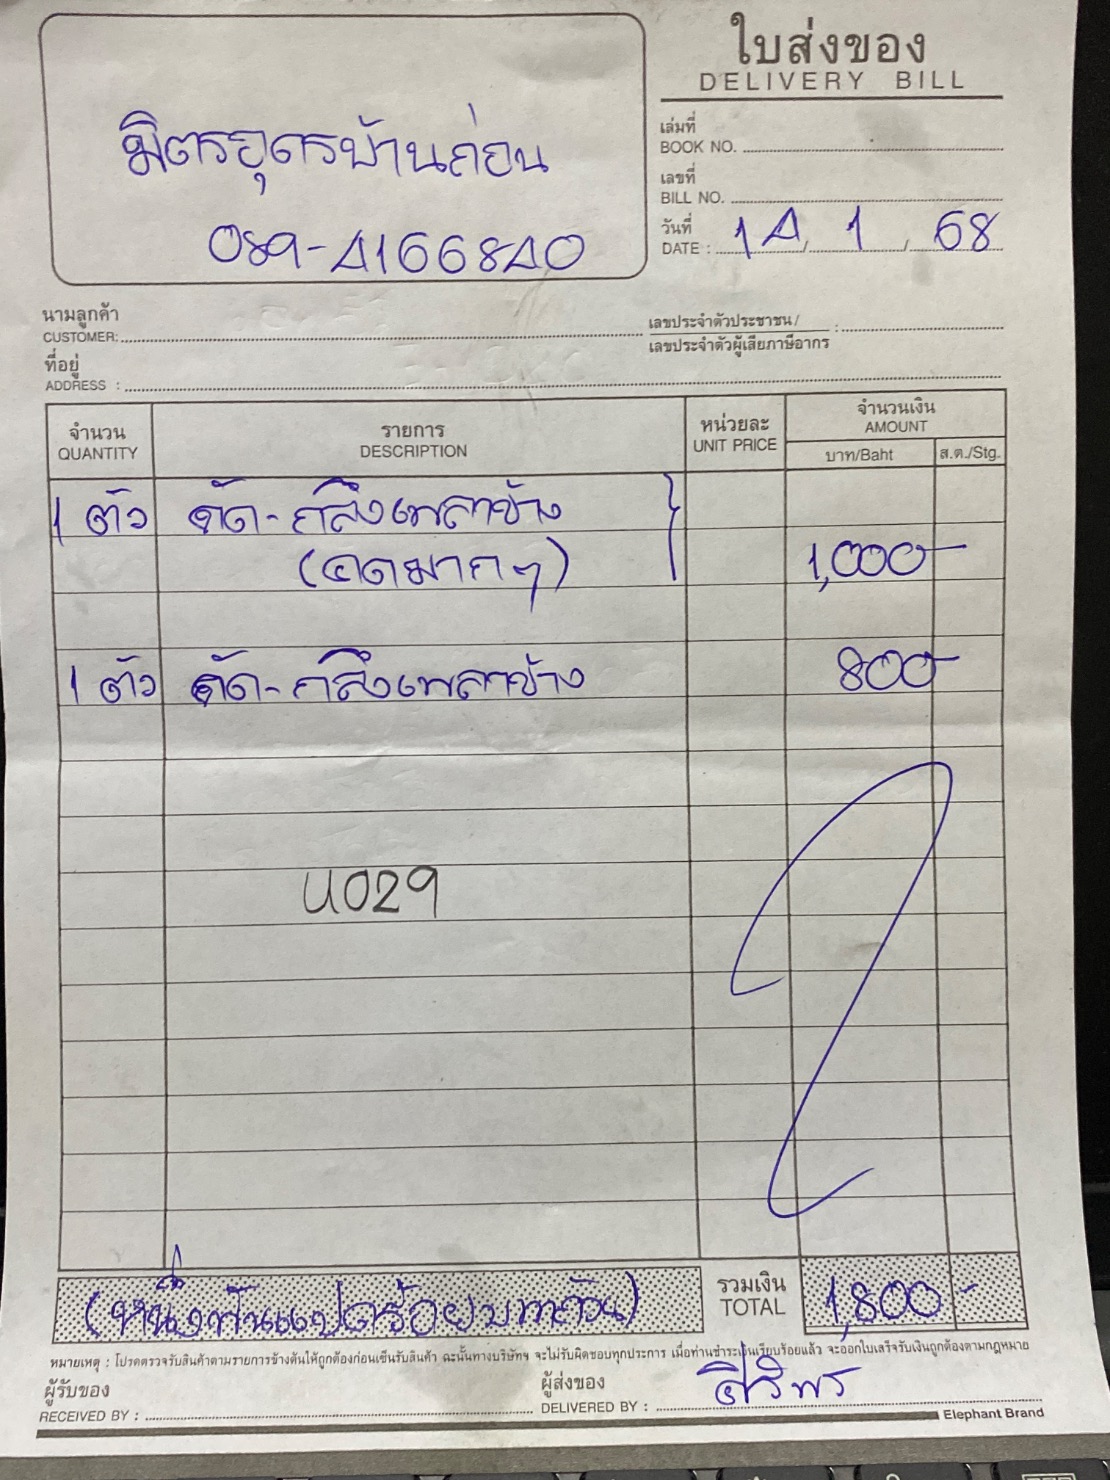 ใบส่งของ
DELIVERY BILL
มิตรอุดรบ้านถ่อน
089-4166840
เล่มที่
BOOK NO.
เลขที่
BILL NO.
วันที่
DATE : 14 / 1 / 68
นามลูกค้า
CUSTOMER:
เลขประจำตัวประชาชน/
เลขประจำตัวผู้เสียภาษีอากร :
ที่อยู่
ADDRESS :
จำนวน QUANTITY รายการ DESCRIPTION หน่วยละ UNIT PRICE จำนวนเงิน AMOUNT
บาท/Baht ส.ต./Stg.
1 ตัว ดัด-กลึงเพลาข้าง
(คดมากๆ) 1,000-
1 ตัว ดัด-กลึงเพลาข้าง 800-
U029
(หนึ่งพันแปดร้อยบาทถ้วน) รวมเงิน TOTAL 1,800-
หมายเหตุ : โปรดตรวจรับสินค้าตามรายการข้างต้นให้ถูกต้องก่อนเซ็นรับสินค้า ฉะนั้นทางบริษัทฯ จะไม่รับผิดชอบทุกประการ เมื่อท่านชำระเงินเรียบร้อยแล้ว จะออกใบเสร็จรับเงินถูกต้องตามกฎหมาย
ผู้รับของ
RECEIVED BY :
ผู้ส่งของ
DELIVERED BY : ศิริพร
Elephant Brand